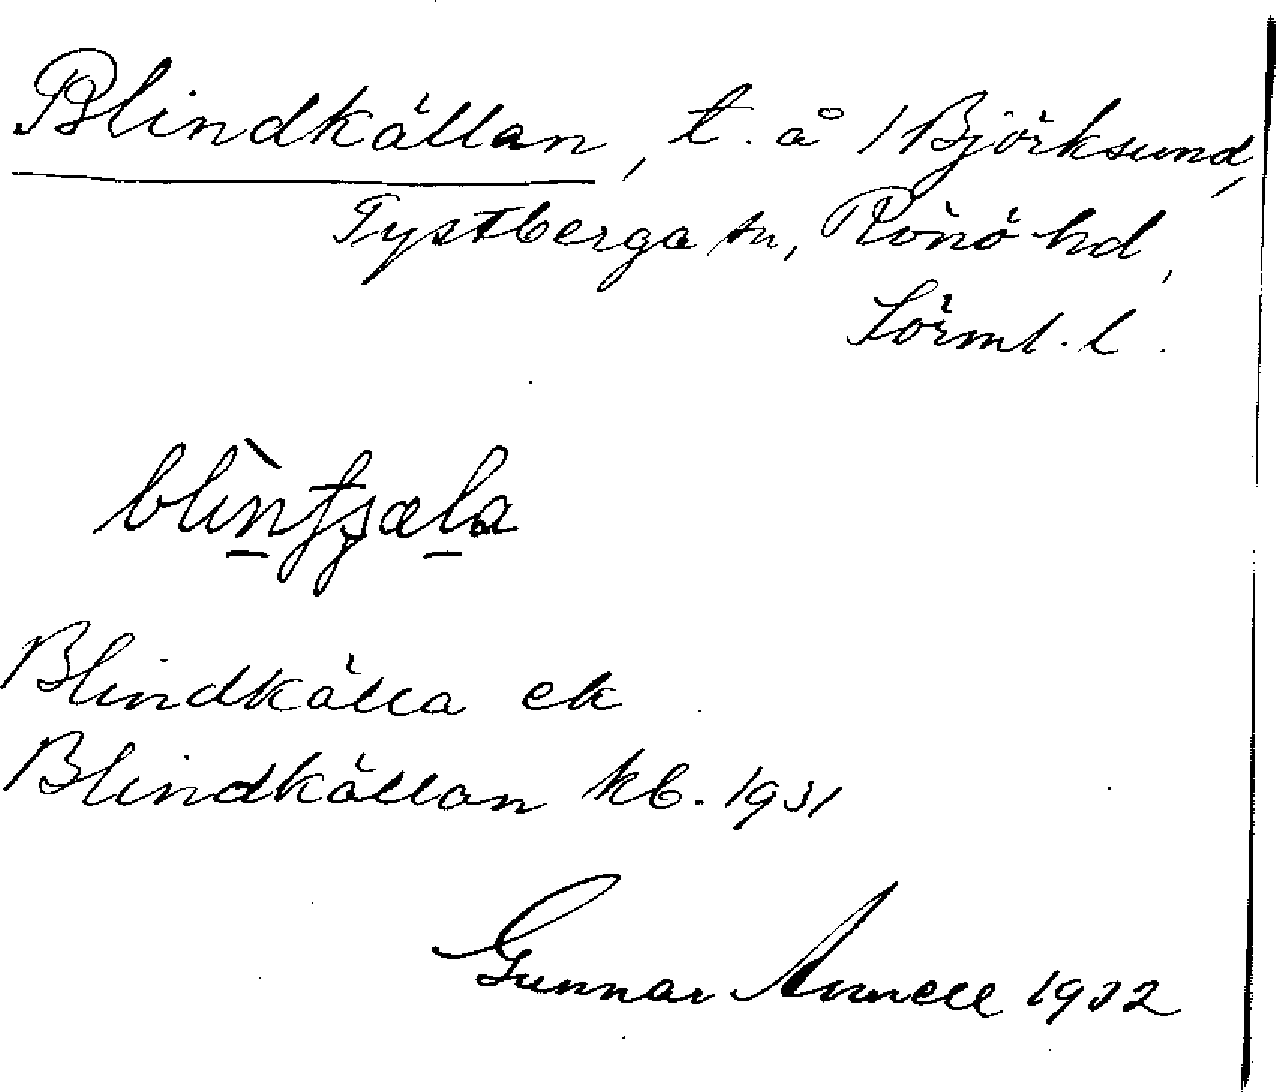 Blindkällan, t. å /Björksund,
Tystberga sn, Rönö hd,
Sörml. l.
Blindkälla ek
Blindkällan kb. 1931
Gunnar Annell 1932